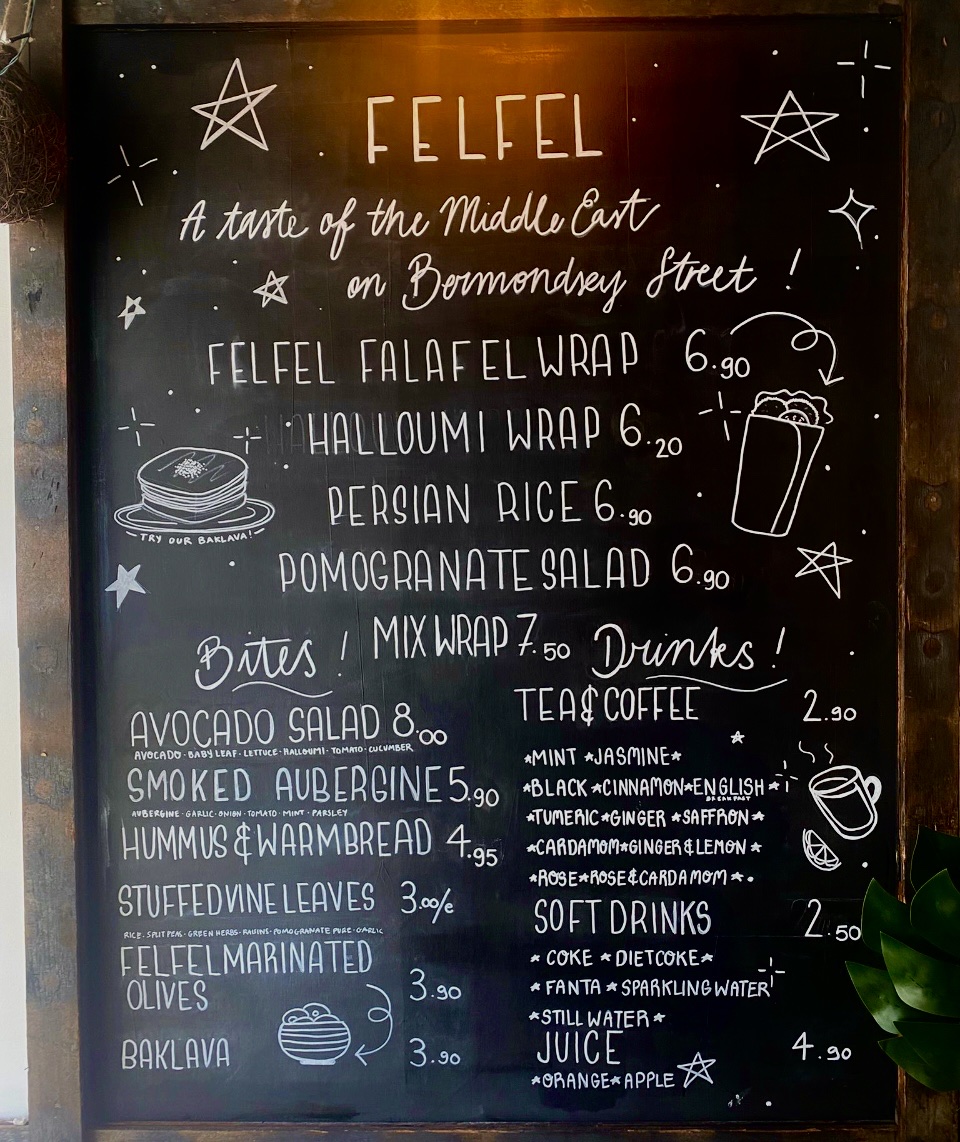 FELFEL
A taste of the Middle East
on Bermondsey Street !
FELFEL FALAFEL WRAP 6.90
HALLOUMI WRAP 6.20
PERSIAN RICE 6.90
POMOGRANATE SALAD 6.90
TRY OUR BAKLAVA!
MIX WRAP 7.50
Bites !
AVOCADO SALAD 8.00
AVOCADO · BABY LEAF · LETTUCE · HALLOUMI · TOMATO · CUCUMBER
SMOKED AUBERGINE 5.90
AUBERGINE · GARLIC · ONION · TOMATO · MINT · PARSLEY
HUMMUS & WARM BREAD 4.95
STUFFED VINE LEAVES 3.00/e
RICE · SPLIT PEAS · GREEN HERBS · RAISINS · POMOGRANATE PURE · GARLIC
FELFEL MARINATED
OLIVES 3.90
BAKLAVA 3.90
Drinks !
TEA & COFFEE 2.90
*MINT *JASMINE*
*BLACK *CINNAMON*ENGLISH*
BREAKFAST
*TUMERIC*GINGER *SAFFRON*
*CARDAMOM*GINGER & LEMON *
*ROSE*ROSE & CARDAMOM*
SOFT DRINKS 2.50
* COKE * DIET COKE*
* FANTA * SPARKLING WATER
*STILL WATER*
JUICE 4.90
*ORANGE*APPLE